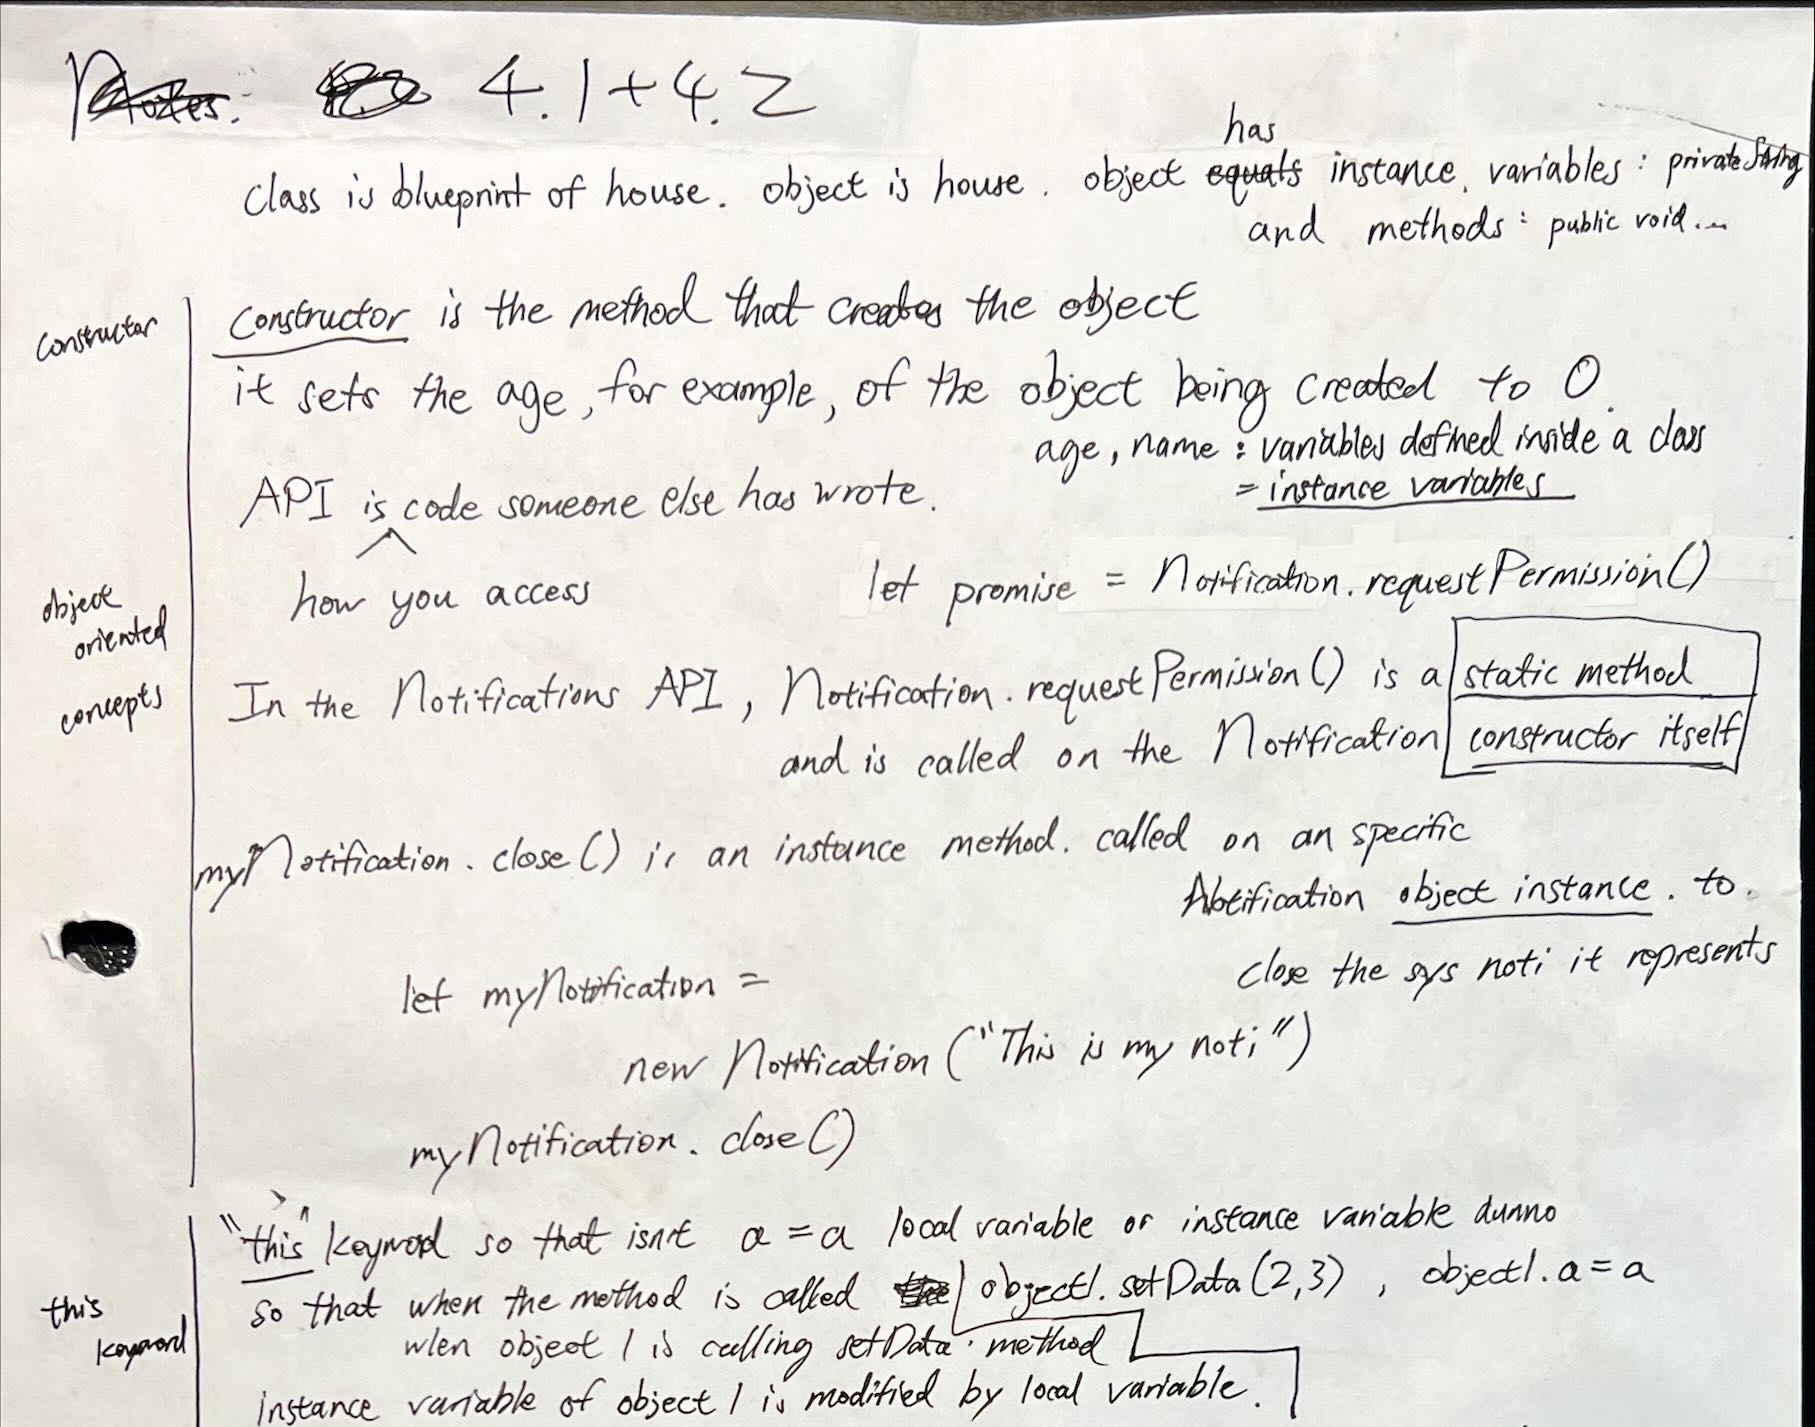 Notes: 4.1+4.2
class is blueprint of house. object is house. object equals has instance variables: private String
and methods: public void...
constructor
constructor is the method that creates the object
it sets the age, for example, of the object being created to 0.
age, name: variables defined inside a class
= instance variables
API is code someone else has wrote.
how you access
let promise = Notification.requestPermission()
object
oriented
concepts
In the Notifications API, Notification.requestPermission() is a static method
and is called on the Notification constructor itself
myNotification.close() is an instance method. called on an specific
Notification object instance. to
close the sys noti it represents
let myNotification =
new Notification("This is my noti")
myNotification.close()
this
keyword
"this" keyword so that isn't a = a local variable or instance variable dunno
so that when the method is called the object1.setData(2,3), object1.a = a
when object 1 is calling setData method
instance variable of object 1 is modified by local variable.